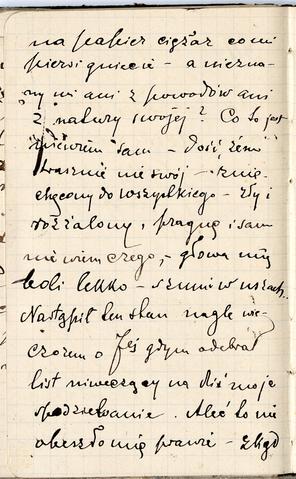 na papier ciężar co mi
piersi gniecie – a niezna-
ny mi ani z powodów ani
z natury swojej? Co to jest
nie wiem sam – dość, żem
strasznie nie swój – znie-
chęcony do wszystkiego – zły i
rozżalony, pragnę i sam
nie wiem czego, – głowa mię
boli lekko – szumi w uszach..
Nastąpił ten stan nagle wie-
czorem o 7ej gdym odebrał
list niweczący na dziś moje
spodziewanie. Ależ to nie
obeszło mię prawie –